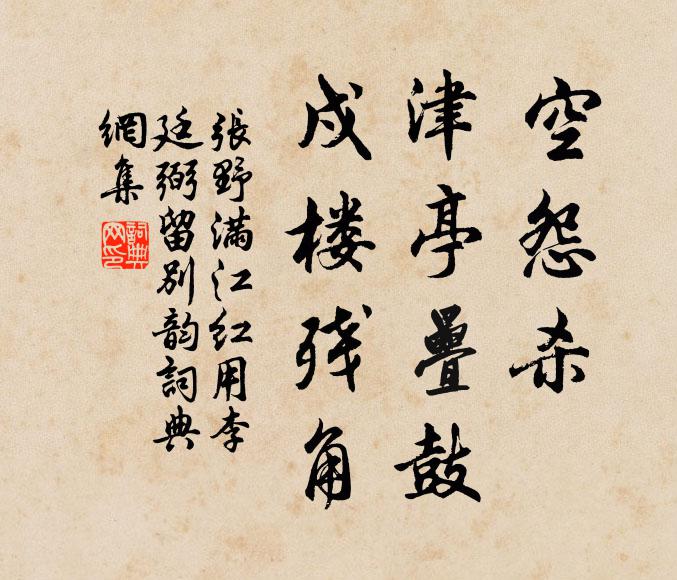 空怨杀
津亭疊鼓
戍楼残角
張野滿江红用李
廷弼留别韵詞典
網集
詞典
网印